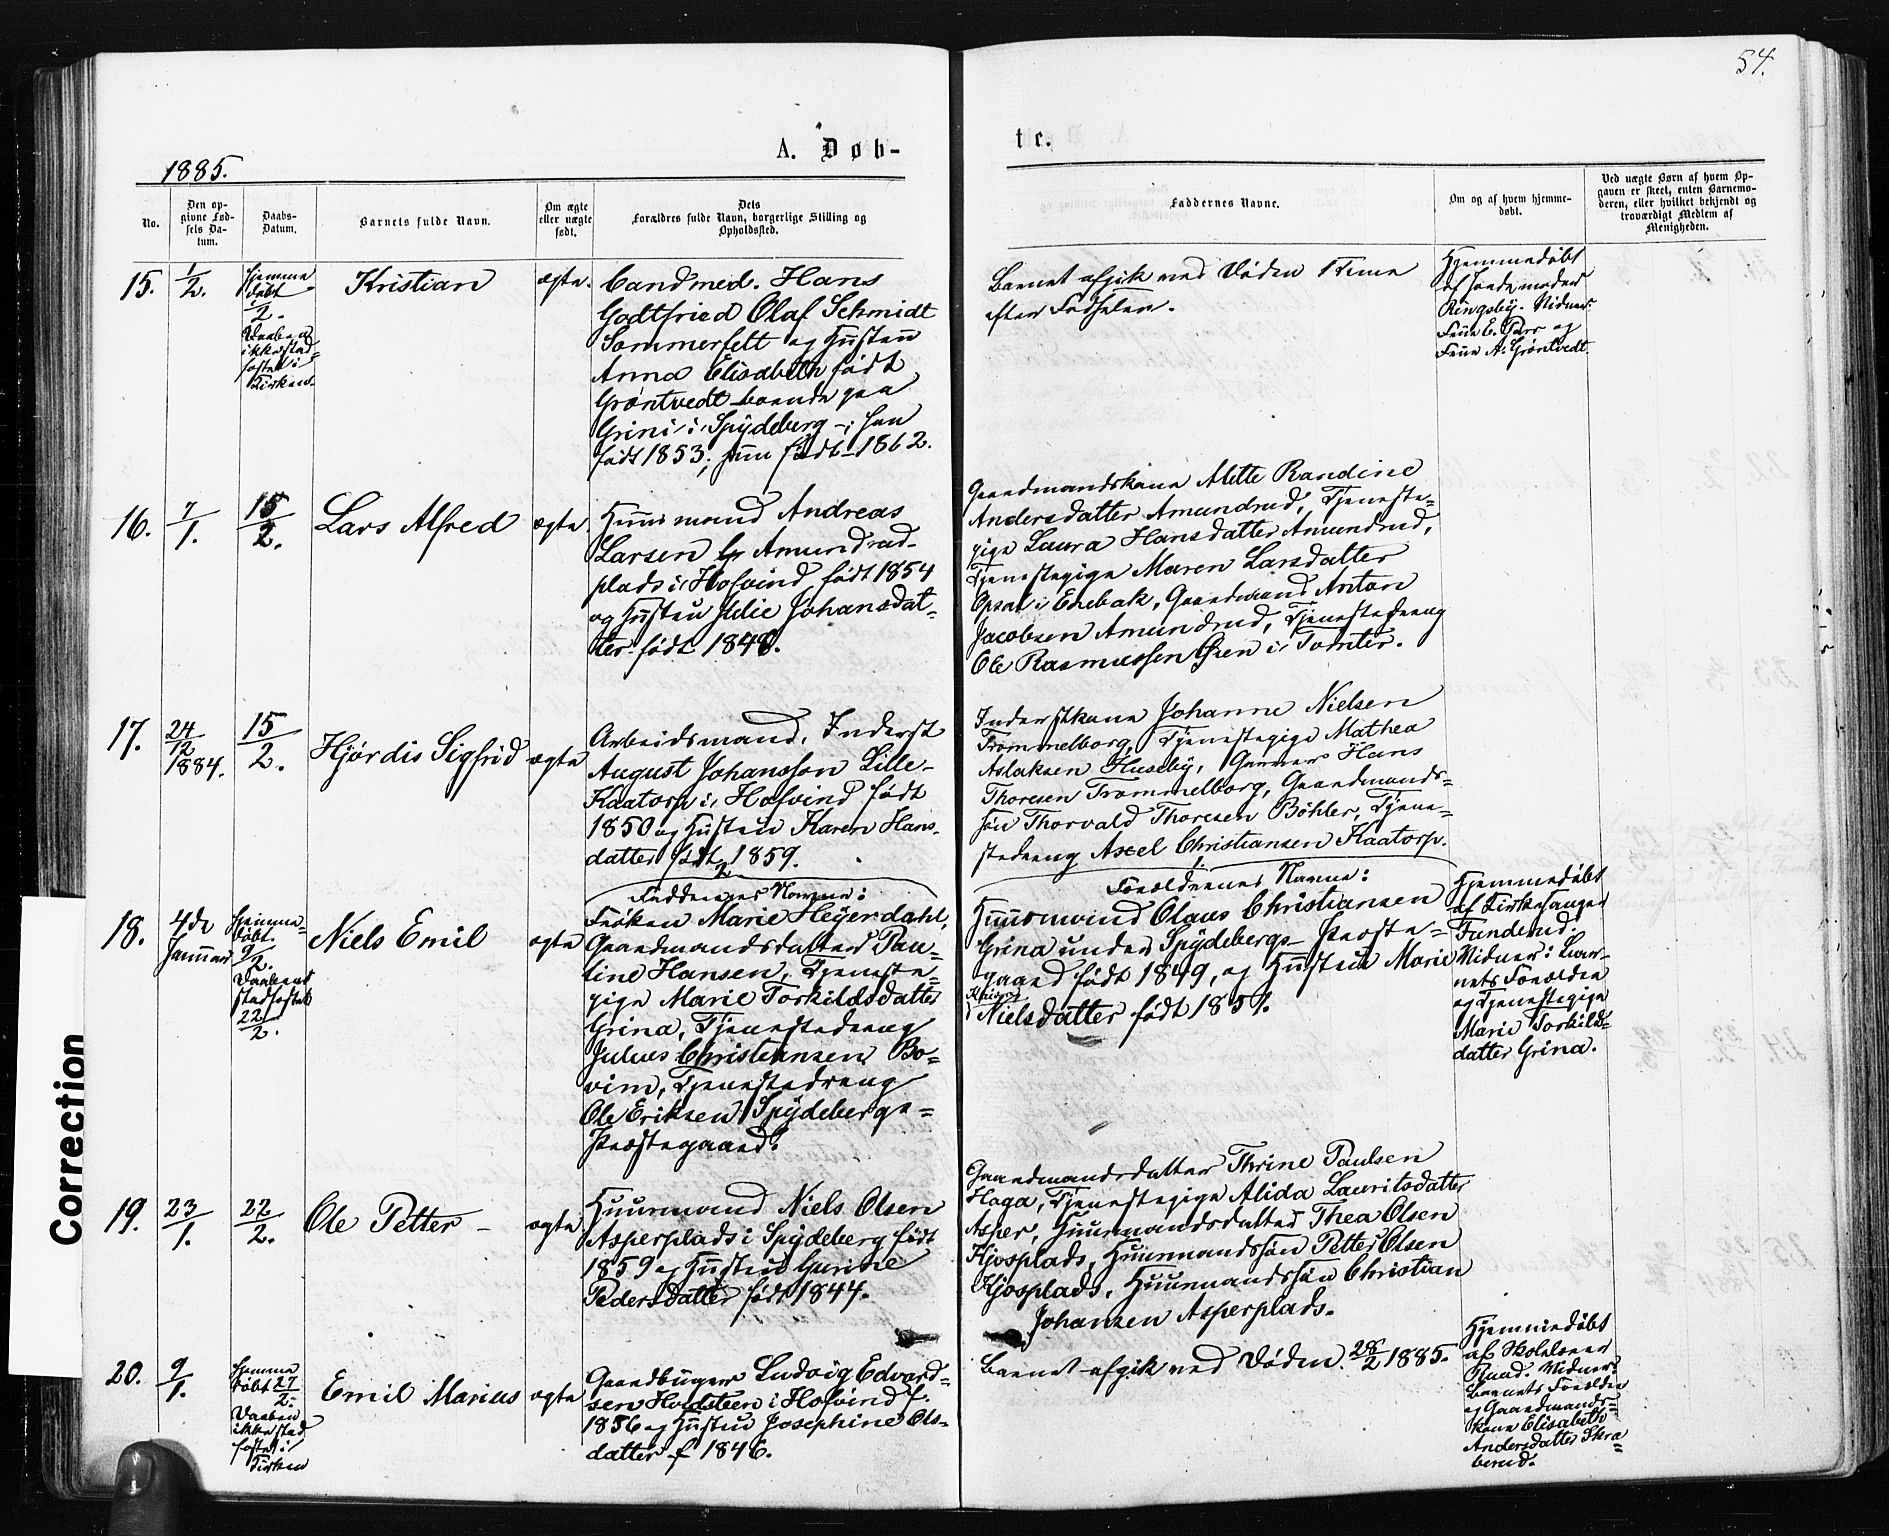 54.
1885.
A. Døb-
te.
No.
Den op-
givne Fød-
sels Da-
tum.
Daabs-
Datum.
Barnets fulde Navn.
Om ægte
eller uægte
født.
Dets
Forældres fulde Navn, borgerlige Stilling og
Opholdssted.
Faddernes Navne.
Om og af hvem hjemme-
døbt.
Ved uægte Børn af hvem Op-
gaven er skeet, enten Barnemo-
deren, eller hvilket bekjendt og
troværdigt Medlem af
Menigheden.
15.
1/2.
Hjemme
døbt
1/2.
Daaben
ikke stad-
fæstet i
Kirken
Kristian
ægte.
Cand. med. Hans
Godtfried Olaf Schmidt
Sommerfelt og Hustru
Anna Elisabeth født
Grøntvedt boende paa
Grini i Spydeberg -; han
født 1853; hun født 1862.
Barnet afgik ved Døden 1 Time
efter Fødselen.
Hjemmedøbt
af Jordemoder
Ringsby. Vidner:
Frue E. og
Frue A. Grøntvedt.
16.
7/1.
15/2.
Lars Alfred
ægte.
Huusmand Andreas
Larsen Amundrud-
plads i Hofvind født 1854
og Hustru Julie Johansdat-
ter født 1848.
Gaardmandskone Mette Randine
Andersdatter Amundrud, Tjeneste-
pige Laura Hansdatter Amundrud,
Tjenestepige Maren Larsdatter
Opsal i Enebak, Gaardmand Anton
Jacobsen Amundrud, Tjenestedreng
Ole Rasmussen Gren i Tomter.
17.
24/12
1884.
15/2.
Hjørdis Sigfrid
ægte
Arbeidsmand, Inderst
August Johansson Lille-
Kaatorp i Hofvind født
1850 og Hustru Karen Hans-
datter født 1859.
Inderstkone Johanne Nielsen
Trommelborg, Tjenestepige Mathea
Aslaksen Huseby, Hans
Thoresen Trommelborg, Gaardmands-
søn Thorvald Thoresen Bøhler, Tjene-
stedreng Axel Christiansen Kaatorp.
18.
4de
Januar
Hjemme-
døbt
9/2.
Daaben
stadfæstet
22/2.
Niels Emil
ægte
2
Faddernes Navne:
Frøken Marie Heyerdahl,
Gaardmandsdatter Pau-
line Hansen, Tjeneste-
pige Marie Torkildsdatter
Grina, Tjenestedreng
Julius Christiansen Bo-
vim, Tjenestedreng
Ole Eriksen Spydebergs-
Præstegaard.
1
Forældrenes Navne:
Huusmand Olaus Christiansen
Grina under Spydebergs Præste-
gaard født 1849, og Hustru Marie
Nielsdatter født 1851.
Hjemmedøbt
af Kirkesanger
Funderud.
Vidner: Bar-
nets Forældre
og Tjenestepige
Marie Torkilds-
datter Grina.
19.
23/1.
22/2.
Ole Petter -
ægte
Huusmand Niels Olsen
Asperplads i Spydeberg født
1859 og Hustru Gurine
Pedersdatter født 1844.
Gaardmandsdatter Thrine Paulsen
Haga, Tjenestepige Alida Lauritsdatter
Asper, Huusmandsdatter Thea Olsen
Kjosplads, Huusmandssøn Petter Olsen
Kjosplads, Huusmandssøn Christian
Johansen Asperplads.
20.
9/1.
Hjemme
døbt 27/2.
Daaben
ikke stad
fæstet i
Kirken
Emil Marius
ægte
Gaardbruger Ludvig Edvard-
sen Holdsteen i Hofvind f.
1856 og Hustru Josephine Ols-
datter f 1846.
Barnet afgik ved Døden 28/2 1885.
Hjemmedøbt
af Skolelærer
Ruud. Vidner:
Barnets Forældre
og Gaardmands-
kone Elisabeth
Andersdatter Skra-
berud.
Correction